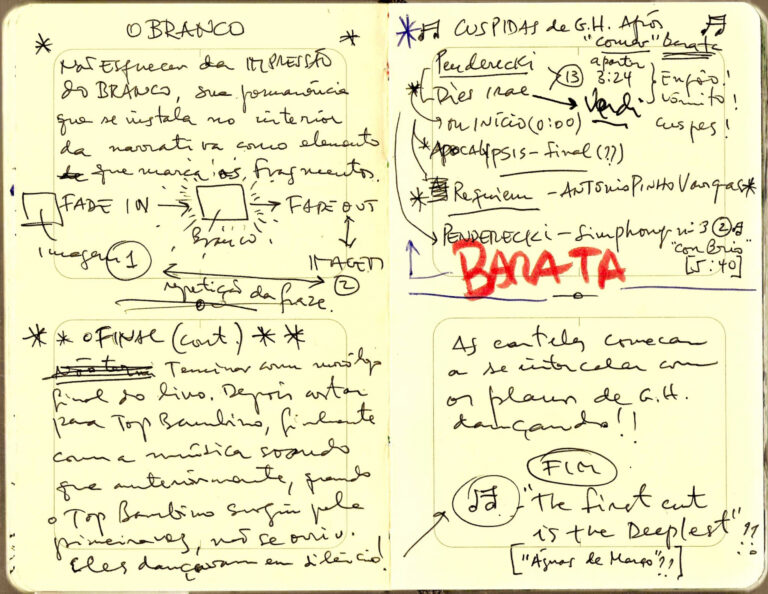 O BRANCO
Não esquecer da IMPRESSÃO
do BRANCO, sua permanência
que se instala no interior
da narrativa como elemento
que marca os fragmentos.
FADE IN → → FADE OUT
Branco
Imagem 1
IMAGEM 2
repetição da frase.
O FINAL (cont.)
Terminar com monólogo
final do livro. Depois cortar
para Top Bambino, finalmente
com a música soando
que anteriormente, quando
o Top Bambino surgiu pela
primeira vez, não se ouviu.
Eles dançavam em silêncio!
CUSPIDAS de G.H. Após
"comer" barata
Penderecki
13
a partir
3:24
Dies irae → Verdi
Engão!
Vômito!
cuspes!
ou INÍCIO (0:00)
APOCALYPSIS - final (??)
Requiem - ANTÓNIO PINHO VARGAS
PENDERECKI - Simphony nº 3 2
"con Brio"
[5:40]
BARATA
As cartelas começam
a se intercalar com
os planos de G.H.
dançando!!
FIM
"The first cut
is the Deeplest"??
["Águas de Março"??]